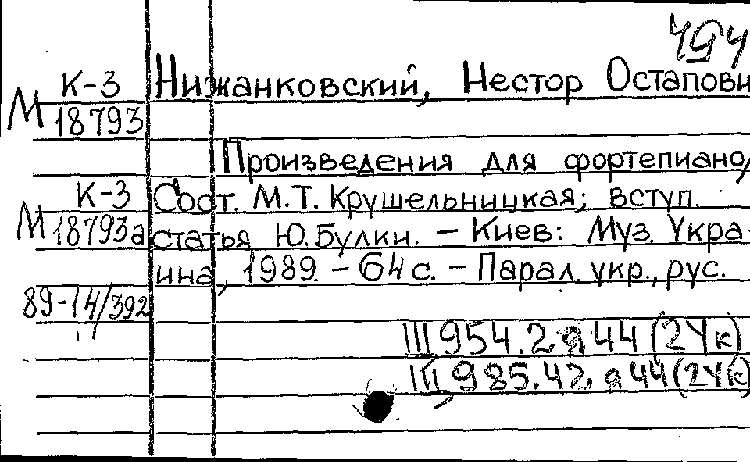 494
К-3 Нижанковский, Нестор Остапови
М 18793
Произведения для фортепиано/
К-3 Сост. М.Т. Крушельницкая; вступ.
М 18793а статья Ю. Булки. – Киев: Муз. Укра-
ина, 1989. – 64 с. – Парал. укр., рус.
89-14/392
III 954.2 я 44 (2Ук)
III, 985.42. я 44 (2Ук)